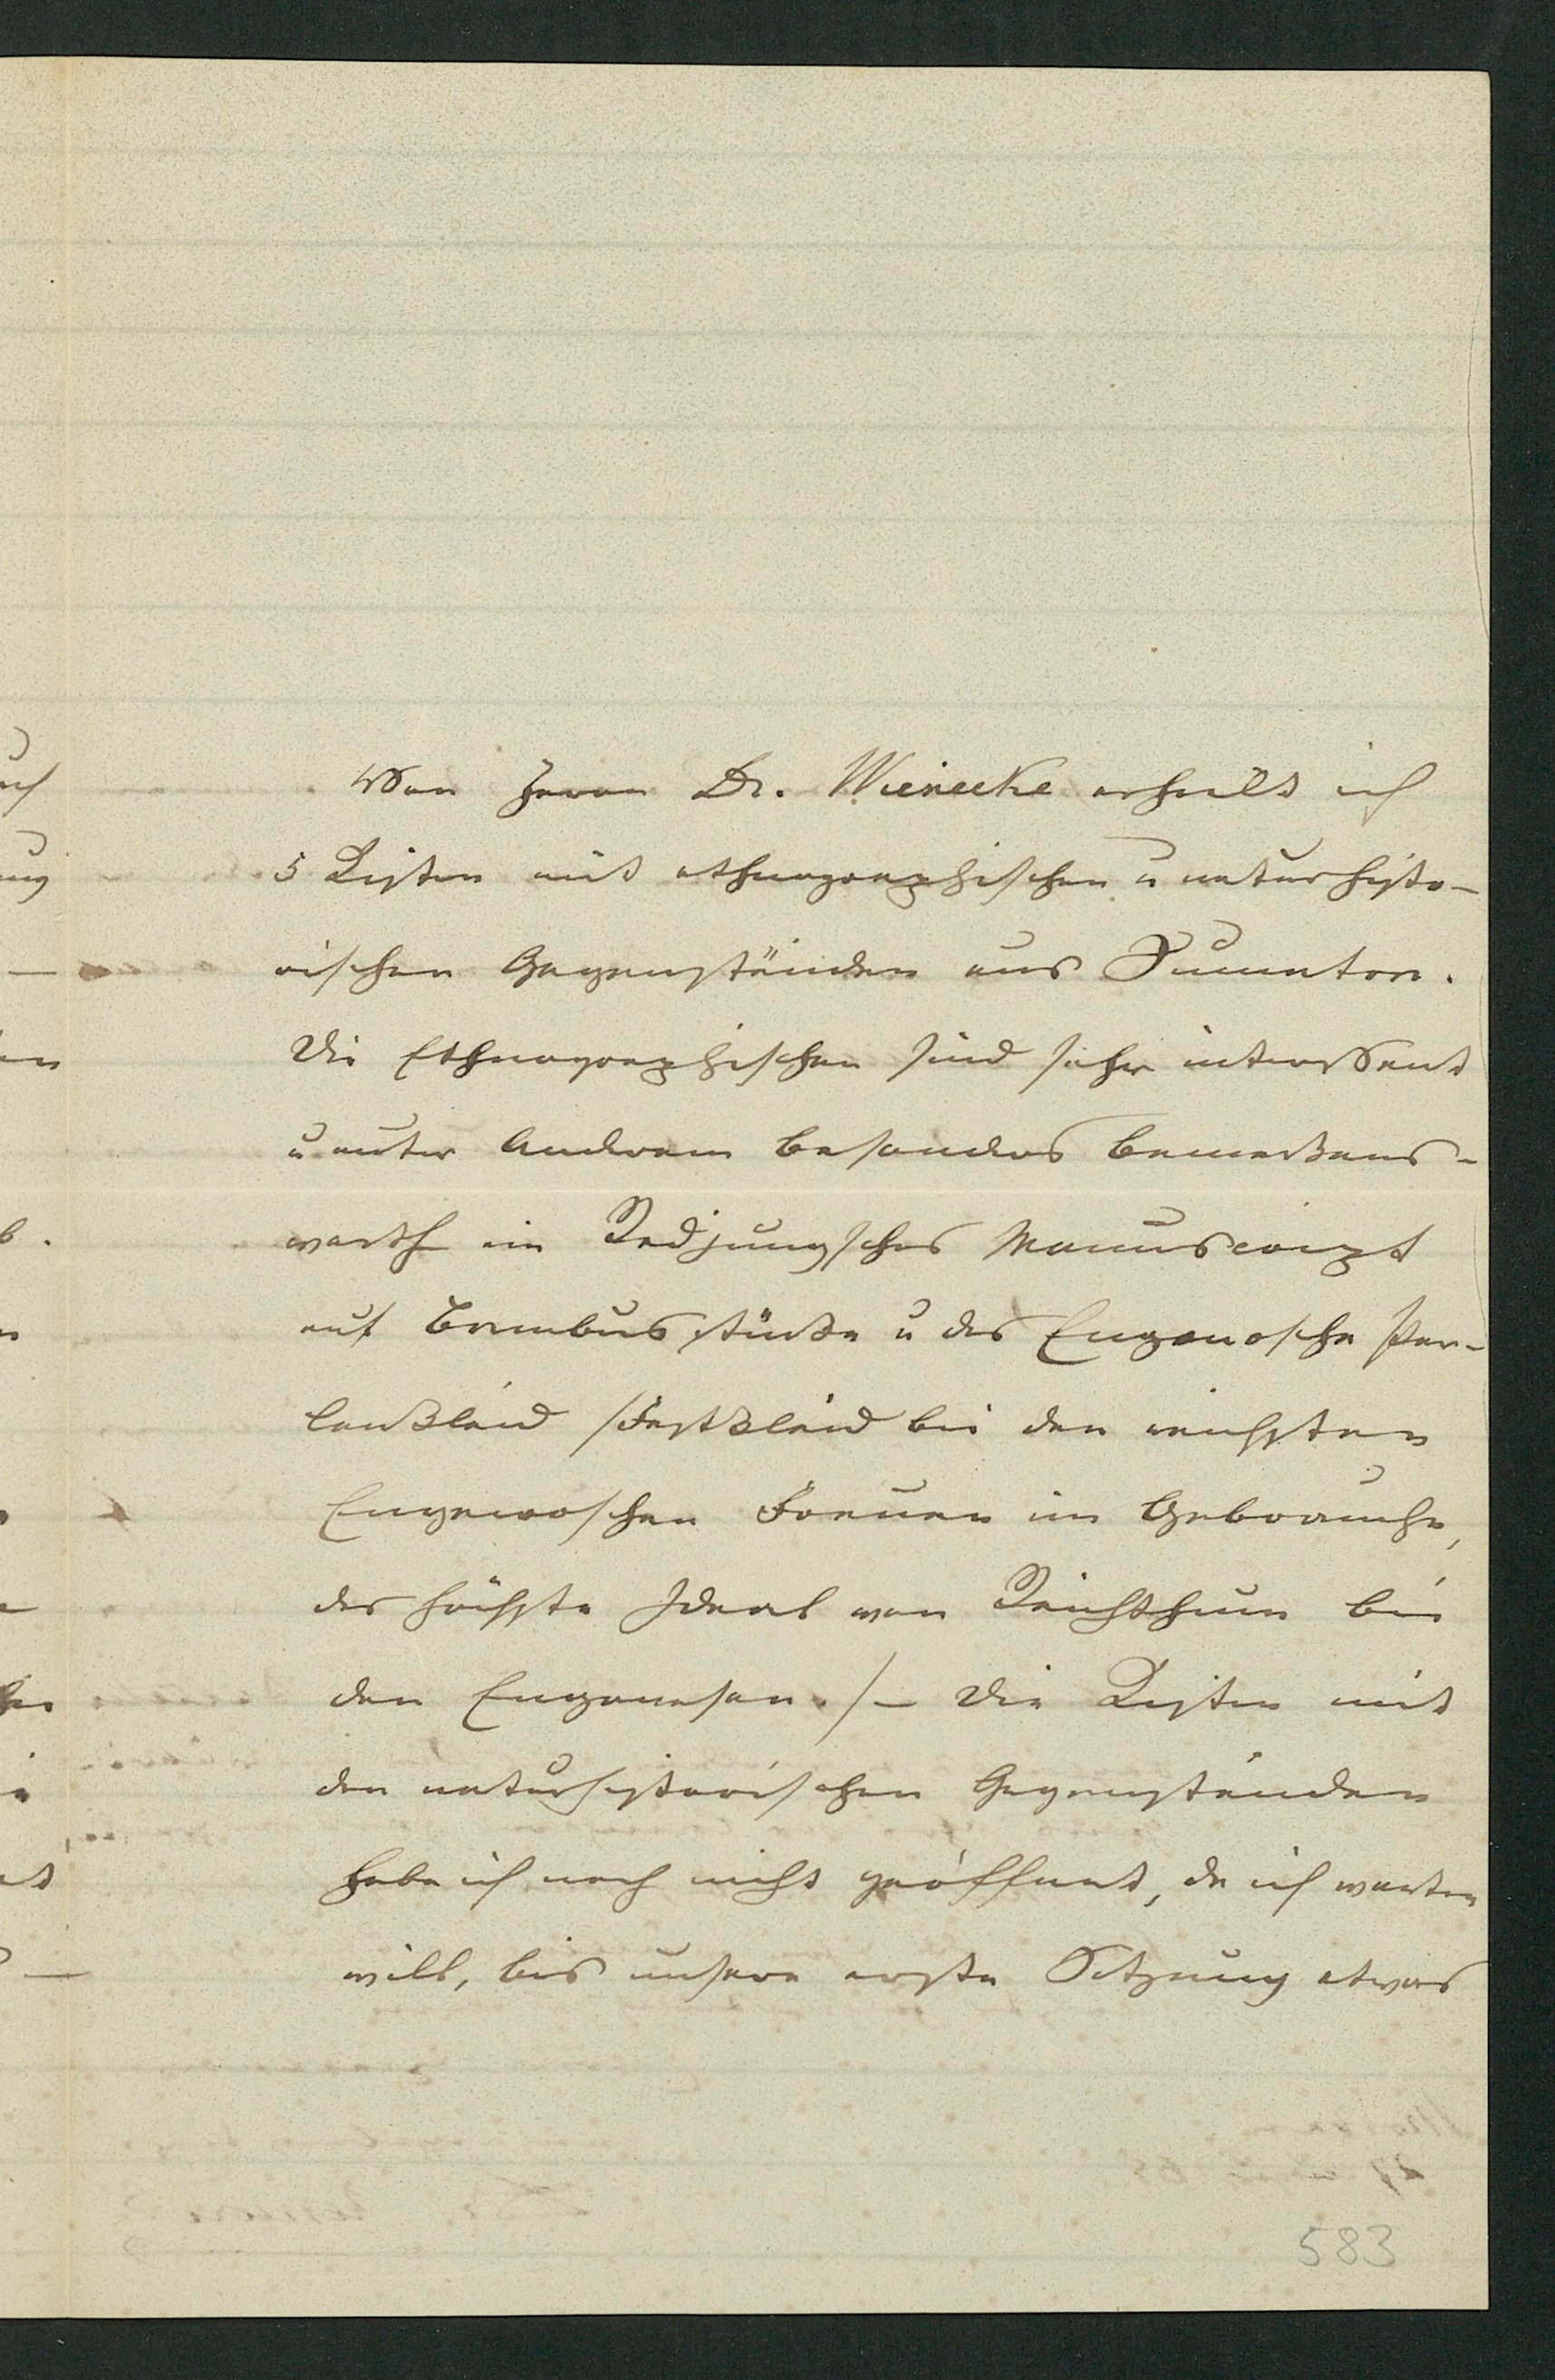 Von Herrn Dr. Wienecke erhielt ich
5 Kisten mit ethnographischen u naturhisto-
rischen Gegenständen aus Sumatra.
Die Ethnographischen sind sehr interessant
u unter Anderem besonders bemerkens-
werth ein Redjungsches Manuscript
auf Bambusstücke u das Enganosche Per-
lenkleid /Festkleid bei den reichsten
Enganoschen Frauen im Gebrauche,
das höchste Ideal von Reichthum bei
den Enganesen./ - Die Kisten mit
den naturhistorischen Gegenständen
habe ich noch nicht geöffnet, da ich warten
will, bis unsere erste Sitzung etwas
583